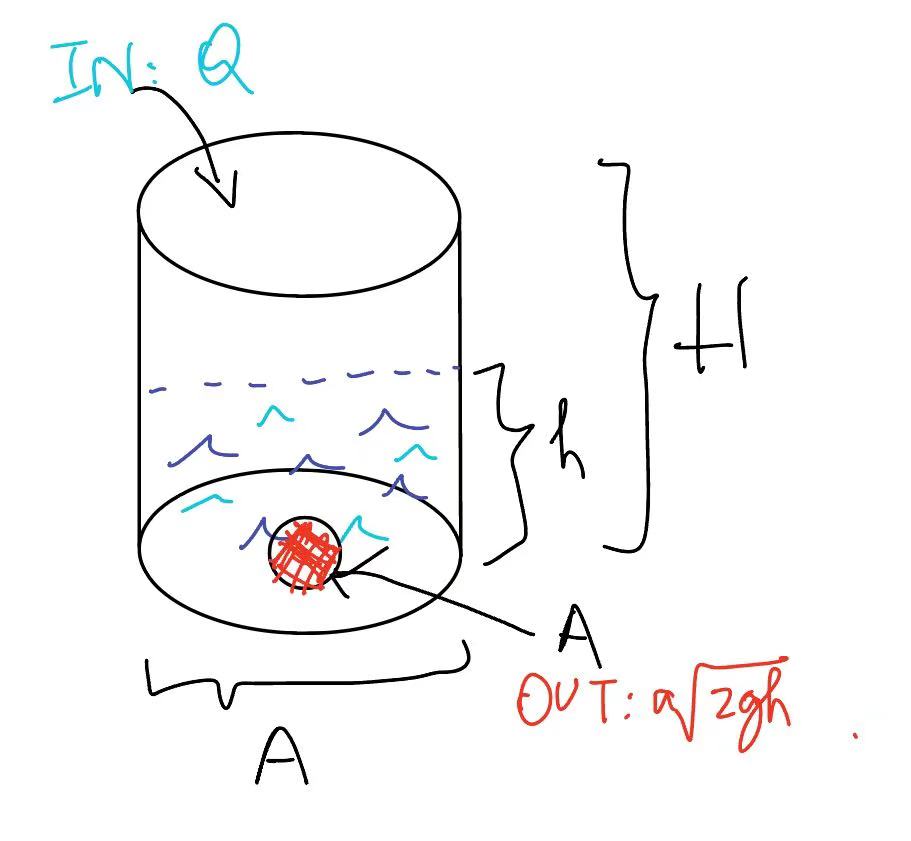 IN: Q
H
h
A
OUT: a√2gh
A